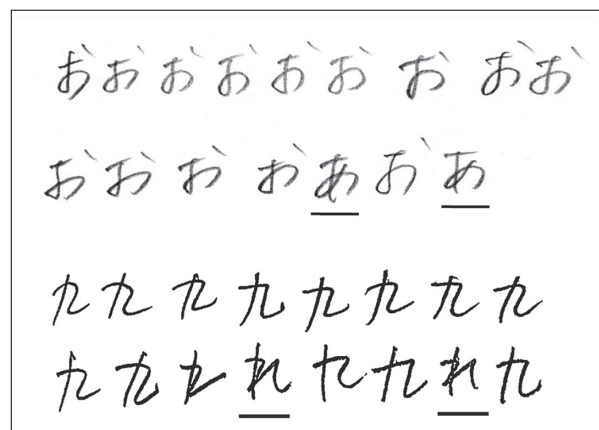 おおおおおおおおお
おおおおあおあ
九九九九九九九九
九九九れ九九れ九